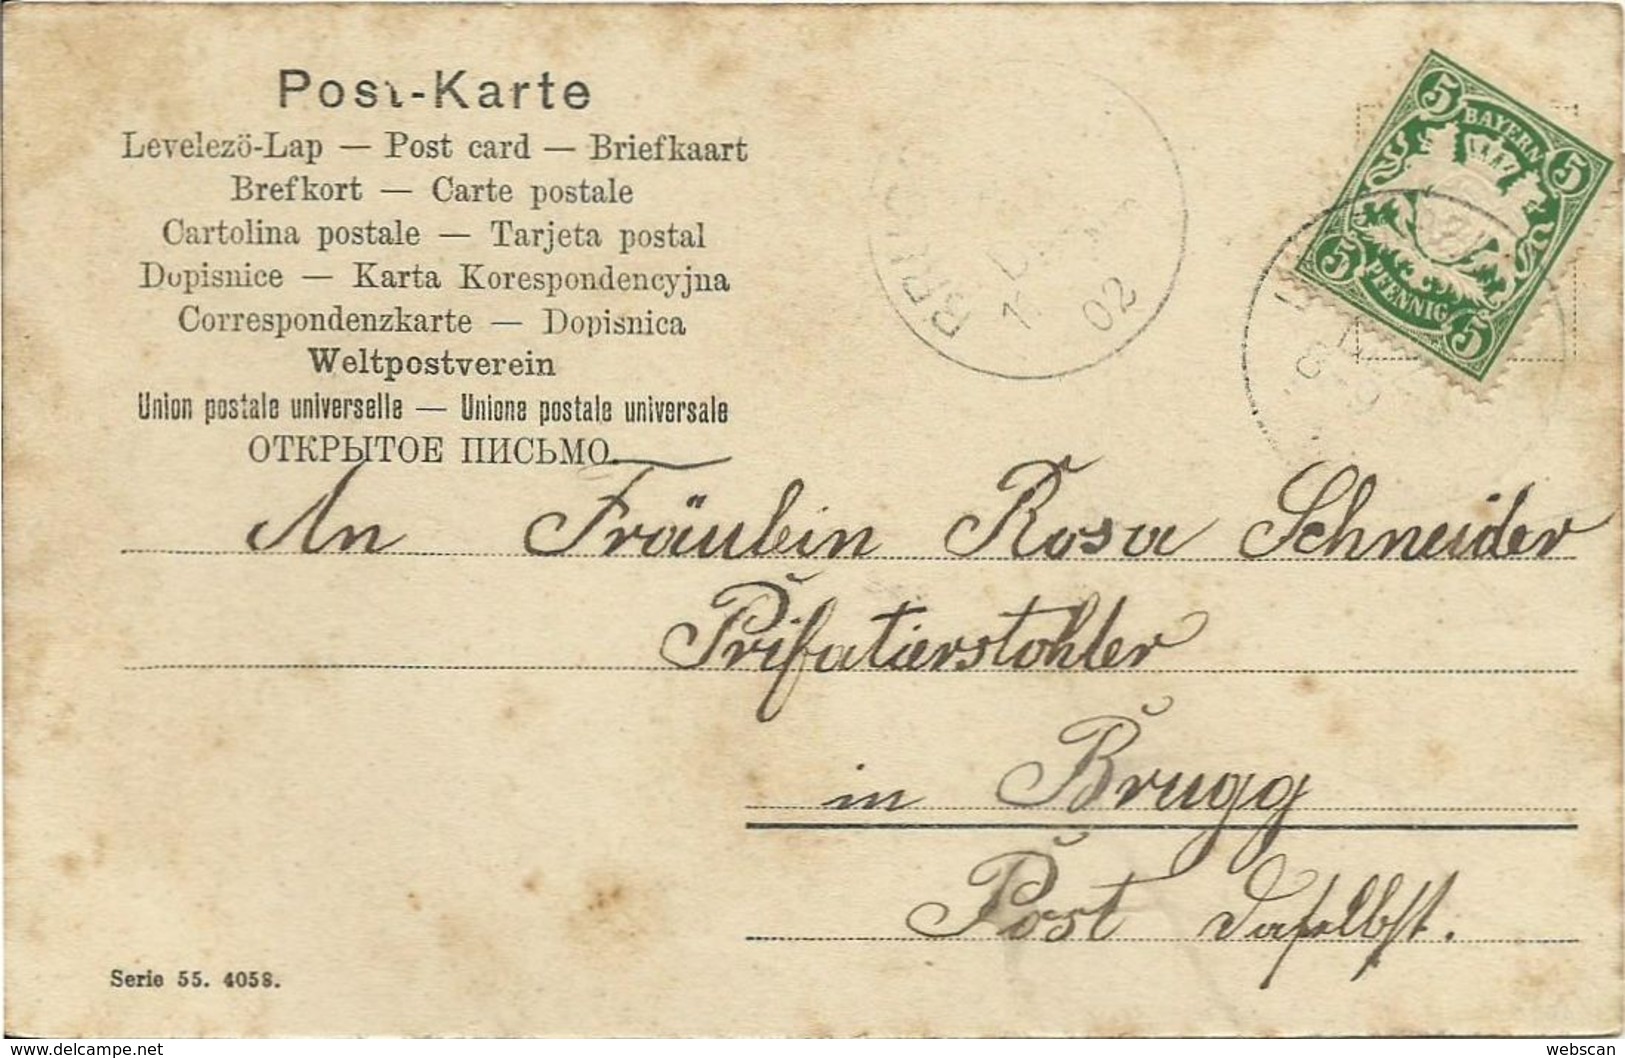 Post-Karte
Levelezö-Lap — Post card — Briefkaart
Brefkort — Carte postale
Cartolina postale — Tarjeta postal
Dopisnice — Karta Korespondencyjna
Correspondenzkarte — Dopisnica
Weltpostverein
Union postale universelle — Unione postale universale
ОТКРЫТОЕ ПИСЬМО.
5 BAYERN 5
5 PFENNIG 5
02
An Fräulein Rosa Schneider
Prifatierstohter
in Brugg
Post daselbst.
Serie 55. 4058.
www.delcampe.net
webscan